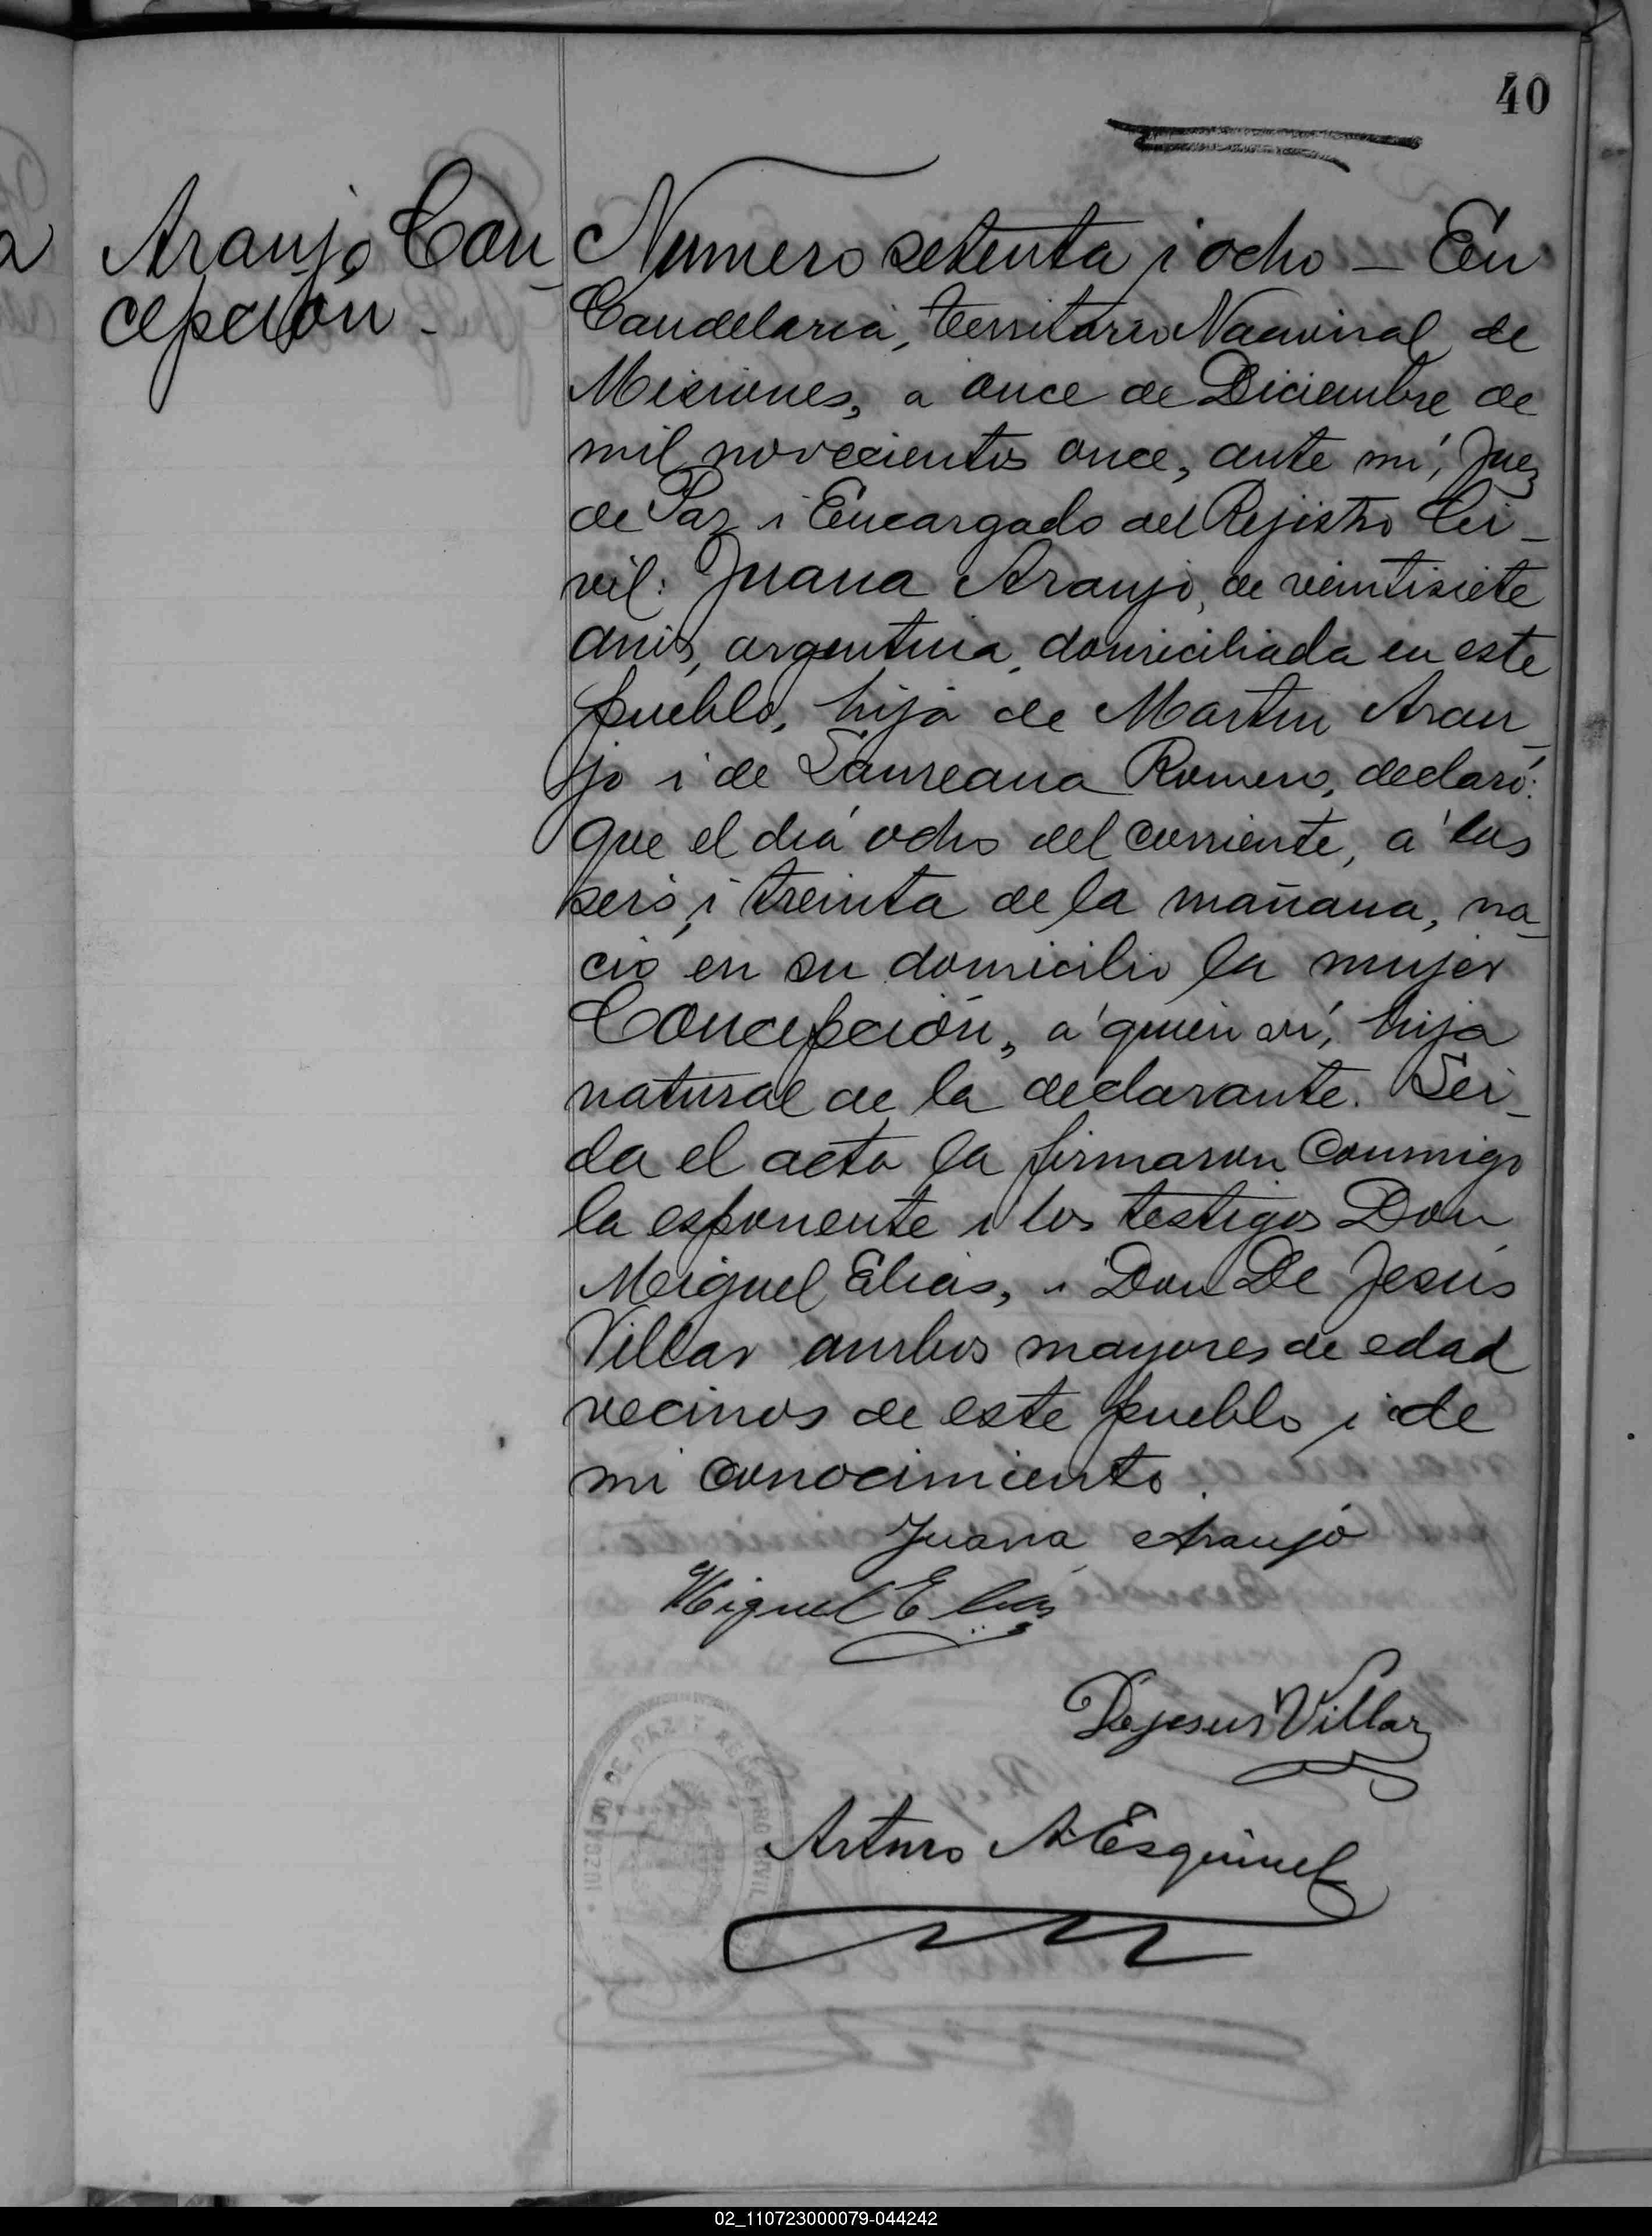 40
Araujo Con_
cepción_
Numero setenta i ocho — En
Candelaria, territorio Nacional de
Misiones, a once de Diciembre de
mil novecientos once, ante mí, Juez
de Paz i Encargado del Rejistro Ci_
vil: Juana Araujo, de veintisiete
años, argentina, domiciliada en este
pueblo, hija de Martin Arau_
jo i de Laureana Romero, declaró:
que el día ocho del corriente, a las
seis i treinta de la mañana, na_
ció en su domicilio la mujer
Concepción, a quien ví, hija
natural de la declarante. Lei_
da el acta la firmaron conmigo
la esponente i los testigos Don
Miguel Elias, i Don De Jesús
Villar ambos mayores de edad
vecinos de este pueblo i de
mi conocimiento.
Juana Araujo
Miguel Elias
Dejesus Villar
Arturo A. Esquivel
JUZGADO DE PAZ Y REGISTRO CIVIL
02_110723000079-044242